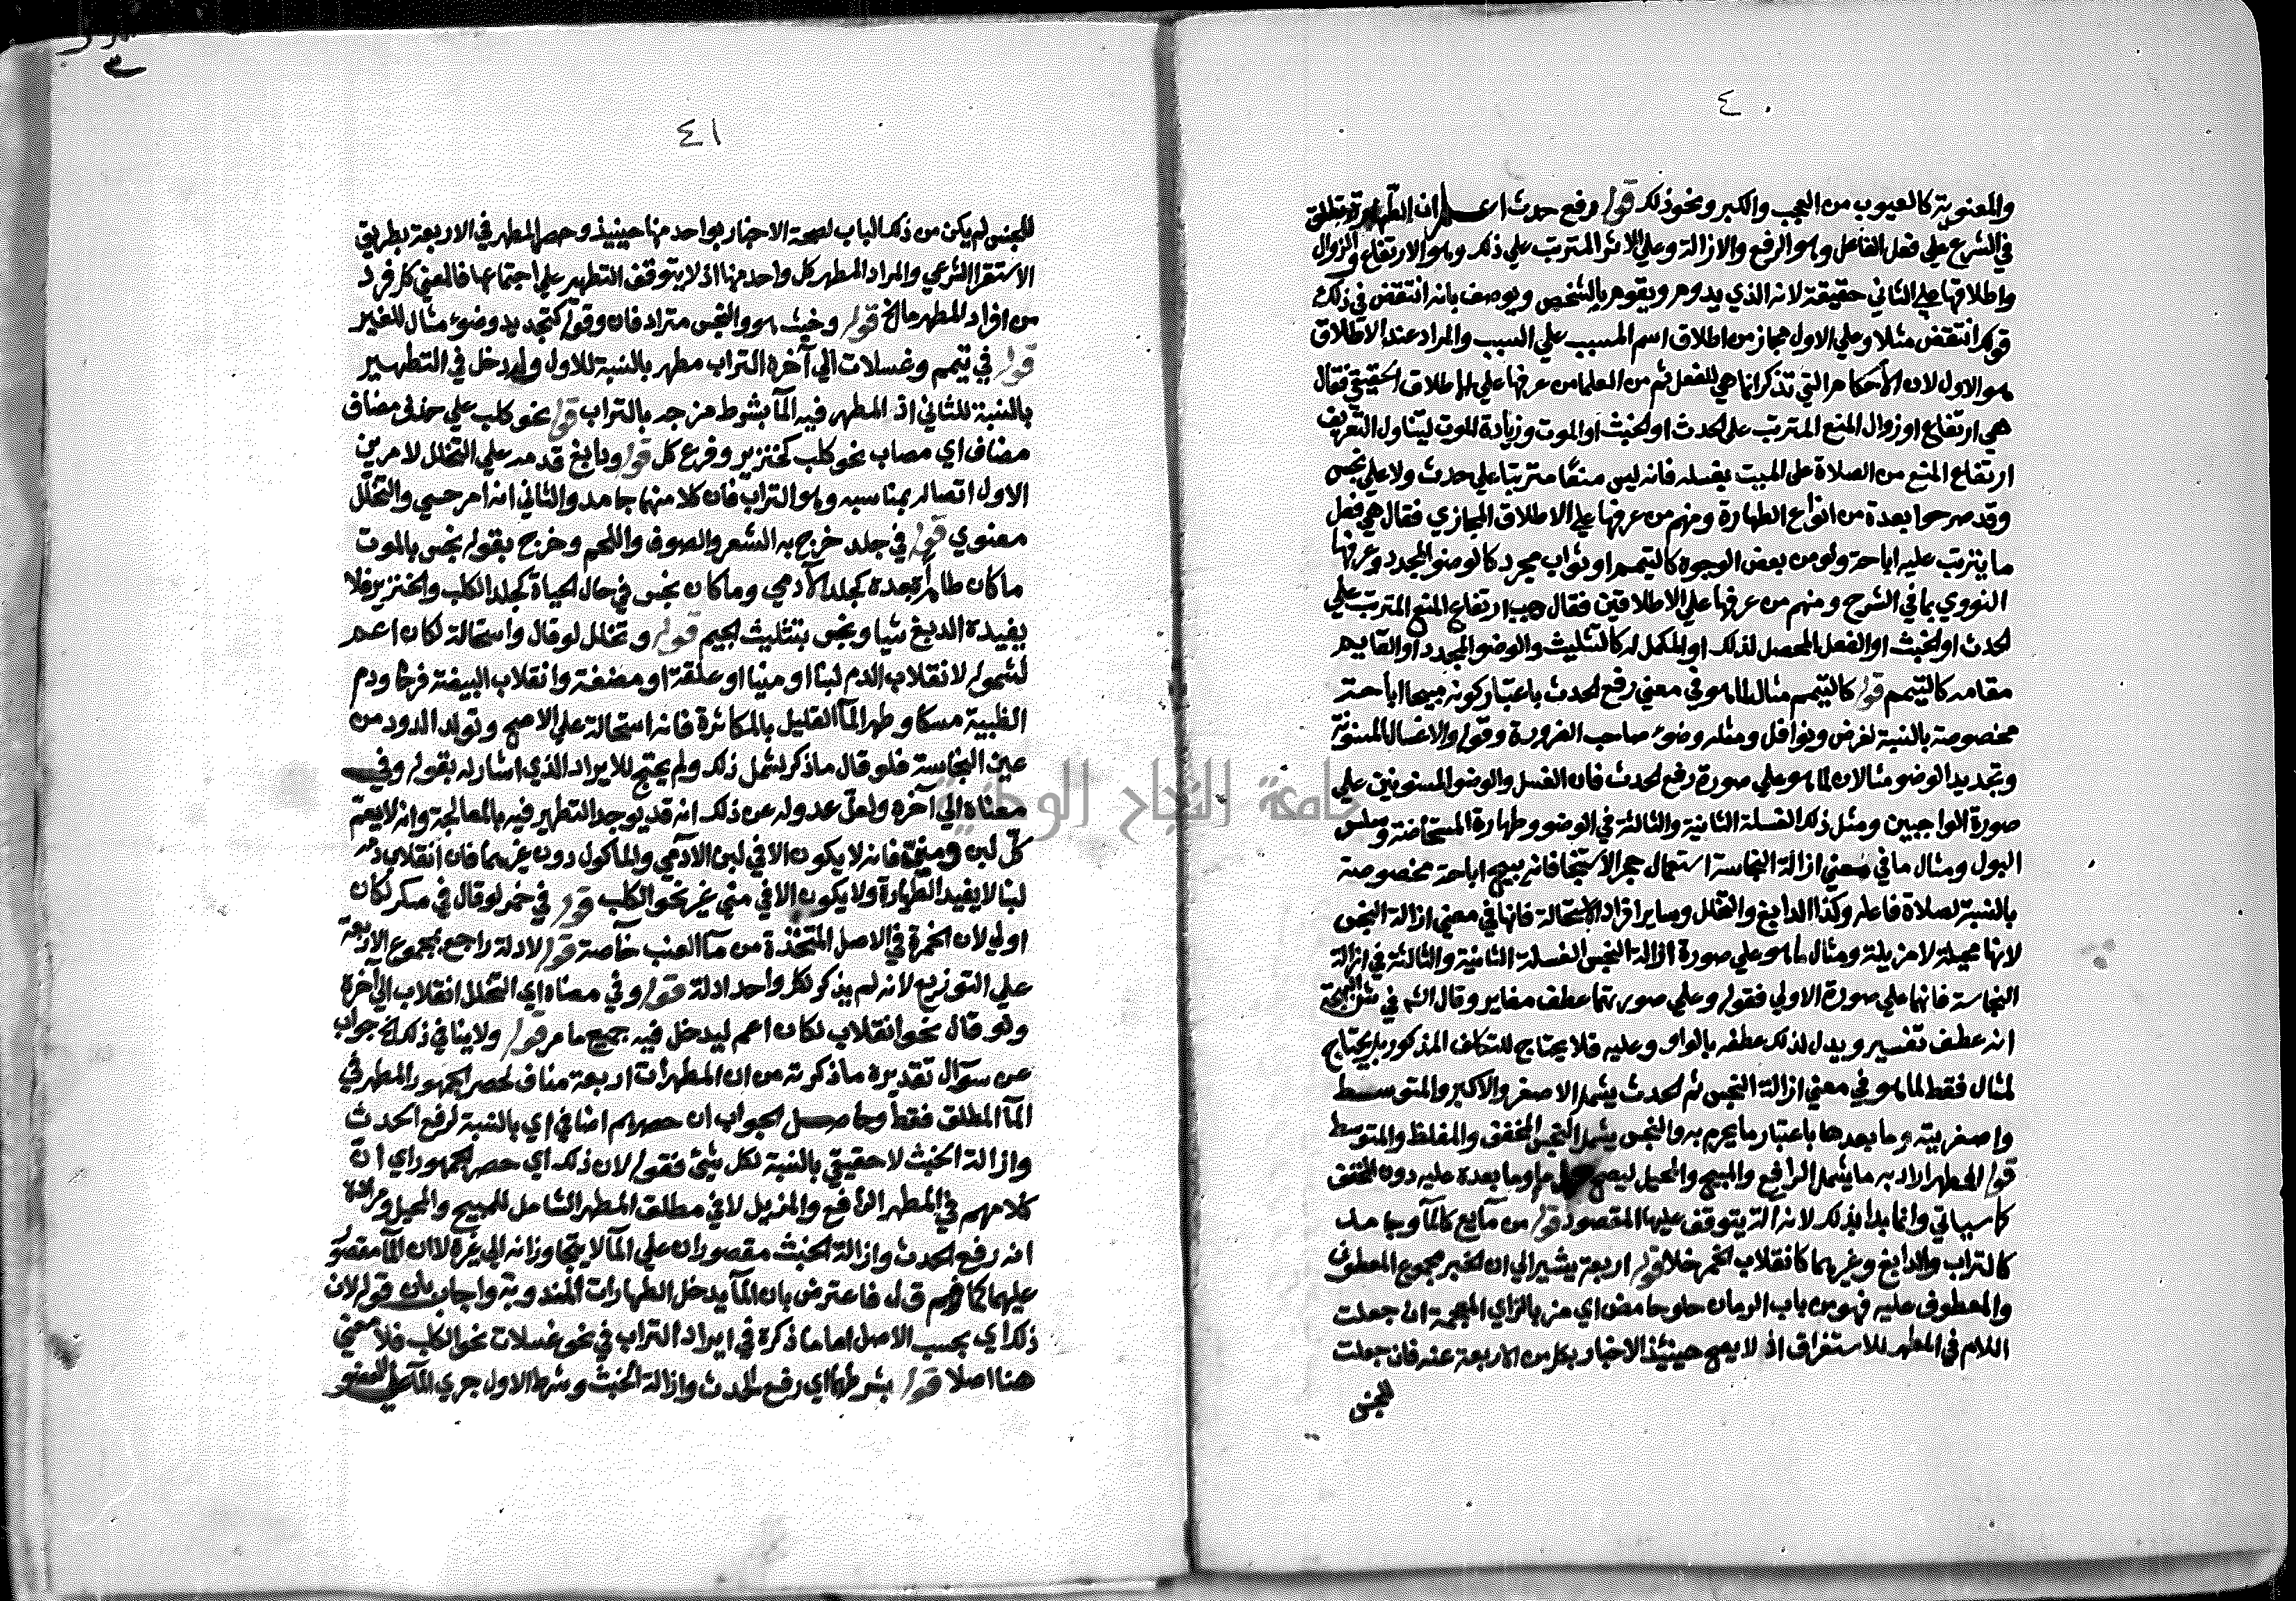 ٤٠
والمعنوية كالعيوب من العجب والكبر ونحو ذلك قوله ورفع حدث اعلم ان الطهارة تطلق
في الشرع علي فعل الفاعل وهو الرفع والازالة وعلي الاثر المترتب علي ذلك وهو الارتفاع والزوال
واطلاقها علي الثاني حقيقة لانه الذي يدوم ويقوم بالشخص ويوصف بانه انتقض في ذلك
قولك انتقض مثلا وعلي الاول مجاز من اطلاق اسم المسبب علي السبب والمراد عند الاطلاق
هو الاول لان الأحكام التي تذكر انما هي للفعل ثم من العلما من عرفها علي الاطلاق الحقيقي فقال
هي ارتفاع او زوال المنع المترتب علي الحدث او الخبث او الموت وزيادة الموت ليتناول التعريف
ارتفاع المنع من الصلاة علي الميت بغسله فانه ليس منعا مترتبا علي حدث ولا علي نجس
وقد صرحوا بعده من انواع الطهارة ومنهم من عرفها علي الاطلاق المجازي فقال هي فعل
ما يترتب عليه اباحة ولو من بعض الوجوه كالتيمم او ثواب مجرد كالوضو المجدد وعرفها
النووي بما في الشرح ومنهم من عرفها علي الاطلاقين فقال هي ارتفاع المنع المترتب علي
الحدث او الخبث او الفعل المحصل لذلك او المكمل له كالتثليث والوضو المجدد او القايم
مقامه كالتيمم قوله كالتيمم مثال لما هو في معني رفع الحدث باعتبار كونه مبيحا اباحة
مخصوصة بالنسبة لفرض ونوافل ومثله وضوء صاحب الضرورة وقوله والاغسال المسنونة
وتجديد الوضو مثالان لما هو علي صورة رفع الحدث فان الغسل والوضو المسنونين علي
صورة الواجبين ومثل ذلك الغسلة الثانية والثالثة في الوضو وطهارة المستحاضة وسلس
البول ومثال ما في معني ازالة النجاسة استعمال حجر الاستنجا فانه يبيح اباحة مخصوصة
بالنسبة لصلاة فاعله وكذا الدابغ والتخلل وساير افراد الاستحالة فانها في معني ازالة النجس
لانها محيلة لا مزيلة ومثال ما هو علي صورة ازالة النجس الغسلة الثانية والثالثة في ازالة
النجاسة فانها علي صورة الاولي فقوله وعلي صورتها عطف مغاير وقال الش في شرح البهجة
انه عطف تفسير ويدل لذلك عطفه بالواو وعليه فلا يحتاج للتكلف المذكور بل يحتاج
لمثال فقط لما هو في معني ازالة النجس ثم الحدث يشمل الاصغر والاكبر والمتوسط
واصغريته وما بعدها باعتبار ما يحرم به والنجس يشمل النجس المخفف والمغلظ والمتوسط
قوله المطهر الادبه ما يشمل الرافع والمبيح والمحيل ليصح وما بعده عليه دون المخفف
كما سياتي وانما بدا بذلك لانه التي يتوقف عليها المقصود قوله من مآيع كالمآ وجامد
كالتراب والدابغ وغيرهما كانقلاب الخمر خلا قوله اربعة يشير الي ان الخبر مجموع المعطوف
والمعطوف عليه فهو من باب الرمان حلو حامض اي مز بالزاي المعجمة ان جعلت
اللام في المطهر للاستغراق اذ لا يصح حينئذ الاخبار بكل من الاربعة عنه فان جعلت
للجنس
٤١
للجنس لم يكن من ذلك الباب لصحة الاخبار بواحد منها حينيذ وحصر المطهر في الاربعة بطريق
الاستقرا الشرعي والمراد المطهر كل واحد منها اذ لا يتوقف التطهر علي اجتماعها فالمعني كل فرد
من افراد المطهر مالخ قوله وخبث هو والنجس مترادفان وقوله كتجديد وضوء مثال للغير
قوله في تيمم وغسلات الي آخره التراب مطهر بالنسبة للاول وله دخل في التطهير
بالنسبة للثاني اذ المطهر فيه المآ بشرط مزجه بالتراب قوله نحو كلب علي حذف مضاف
مضاف اي مصاب نحو كلب كخنزير وفرع كل قوله ودابغ قدمه علي التخلل لامرين
الاول اتصاله بمناسبه وهو التراب فان كلا منهما جامد والثاني انه امر حسي والتخلل
معنوي قوله في جلد خرج به الشعر والصوف واللحم وخرج بقوله نجس بالموت
ما كان طاهرا بعده كجلد الآدمي وما كان نجس في حال الحياة كجلد الكلب والخنزير فلا
يفيده الدبغ شيا ونجس بتثليث الجيم قوله وتخلل لو قال واستحالة لكان اعم
لشموله لانقلاب الدم لبنا او منيا او علقة او مضغة وانقلاب البيضة فرخا ودم
الظبية مسكا وطهر المآ القليل بالمكاثرة فانه استحالة علي الاصح وتولد الدود من
عين النجاسة فلو قال ما ذكر لشمل ذلك ولم يحتج للايراد الذي اشار له بقوله وفي
معناه الي آخره ولعل عدوله عن ذلك انه قد يوجد التطهير فيه بالمعالجة وانه لا يعم
كل لبن ومني فانه لا يكون الا في لبن الآدمي والماكول دون غيرهما فان انقلاب دمه
لبنا لا يفيد الطهارة ولا يكون الا في مني غير نحو الكلب قوله في خمر لو قال في مسكر لكان
اولي لان الخمرة في الاصل المتخذة من مآ العنب خآصة قوله لادلة راجع لمجموع الاربعة
علي التوزيع لانه لم يذكر لكل واحد ادلة قوله وفي معناه اي التخلل انقلاب الي آخره
ولو قال نحو انقلاب لكان اعم ليدخل فيه جميع ما مر قوله ولا ينافي ذلك الخ جواب
عن سوآل تقديره ما ذكرته من ان المطهرات اربعة مناف لحصر الجمهور المطهر في
المآ المطلق فقط وحاصل الجواب ان حصرهم اضافي اي بالنسبة لرفع الحدث
وازالة الخبث لا حقيقي بالنسبة لكل شيئ فقوله لان ذلك اي حصر الجمهور اي ان
كلامهم في المطهر الرافع والمزيل لا في مطلق المطهر الشامل للمبيح والمحيل ومراده
انه رفع الحدث وازالة الخبث مقصوران علي المآ لا يتجاوزانه الي غيره لا ان المآ مقصور
عليهما كما فهم ق ل فاعترض بان المآ يدخل الطهارات المندوبة واجاب بان قوله لان
ذلك اي بحسب الاصل اما ما ذكره في ايراد التراب في نحو غسلات نحو الكلب فلا معني
هنا اصلا قوله بشرطها اي رفع الحدث وازالة الخبث وشرط الاول جري المآ علي العضو
جامعة النجاح الوطنية